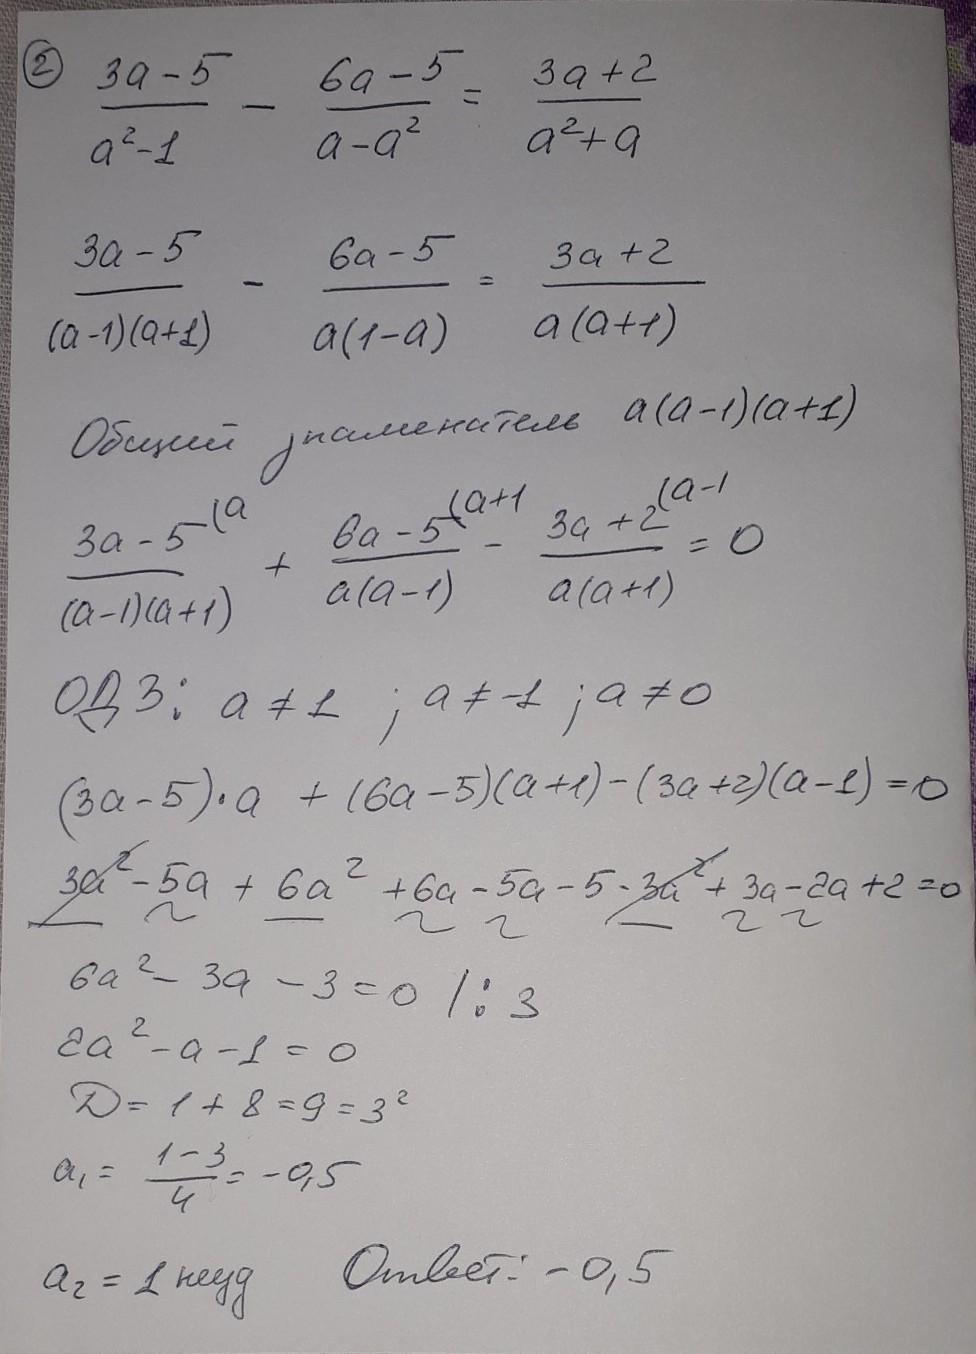 ② (3a-5)/(a²-1) - (6a-5)/(a-a²) = (3a+2)/(a²+a)
(3a-5)/((a-1)(a+1)) - (6a-5)/(a(1-a)) = (3a+2)/(a(a+1))
Общий знаменатель a(a-1)(a+1)
(3a-5)/((a-1)(a+1)) (a + (6a-5)/(a(a-1)) (a+1 - (3a+2)/(a(a+1)) (a-1 = 0
ОДЗ: a≠1 ; a≠-1 ; a≠0
(3a-5)·a + (6a-5)(a+1)-(3a+2)(a-1)=0
3a²-5a + 6a² +6a-5a-5-3a²+3a-2a+2=0
6a²-3a-3=0 /:3
2a²-a-1=0
D=1+8=9=3²
a₁=(1-3)/4=-0,5
a₂=1 неуд Ответ: -0,5